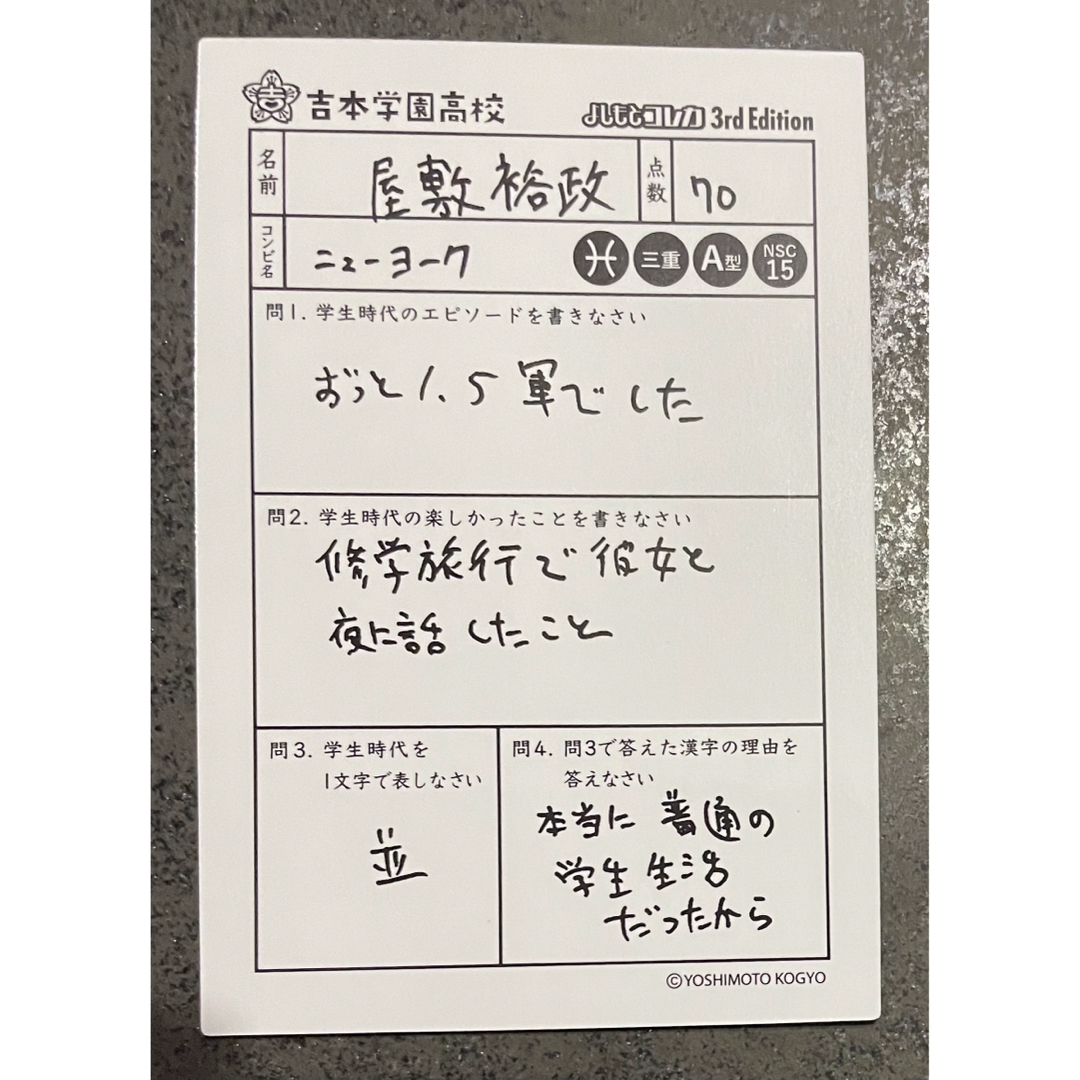 吉本学園高校
よしもとコレカ 3rd Edition
名前
屋敷裕政
点数
70
コンビ名
ニューヨーク
三重
A型
NSC
15
問1. 学生時代のエピソードを書きなさい
ずっと1.5軍でした
問2. 学生時代の楽しかったことを書きなさい
修学旅行で彼女と
夜に話したこと
問3. 学生時代を
1文字で表しなさい
並
問4. 問3で答えた漢字の理由を
答えなさい
本当に普通の
学生生活
だったから
©YOSHIMOTO KOGYO